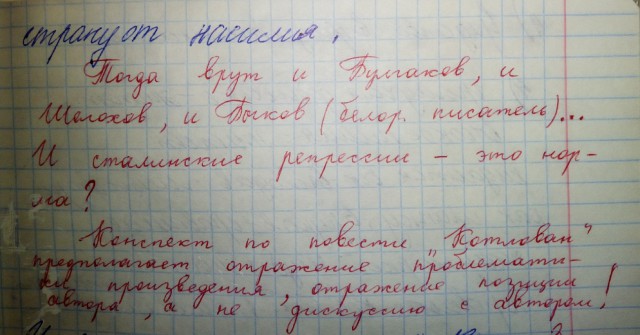 страну от насилия.
Тогда врут и Булгаков, и
Шолохов, и Быков (белор. писатель)...
И сталинские репрессии – это нор-
ма?
Конспект по повести „Котлован"
предполагает отражение проблемати-
ки произведения, отражение позиции
автора, а не дискуссию с автором!